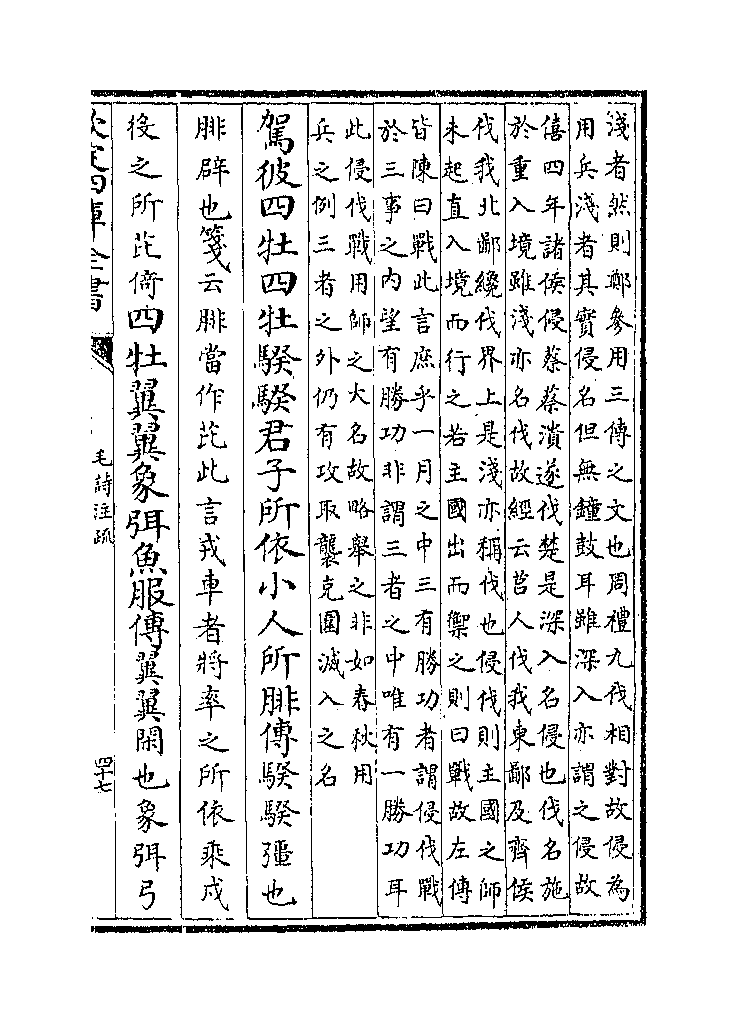 淺者然則鄭參用三傳之文也周禮九伐相對故侵為
用兵淺者其實侵名但無鐘鼓耳雖深入亦謂之侵故
僖四年諸侯侵蔡蔡潰遂伐楚是深入名侵也伐名施
於重入境雖淺亦名伐故經云莒人伐我東鄙及齊侯
伐我北鄙纔伐界上是淺亦稱伐也侵伐則主國之師
未起直入境而行之若主國出而禦之則曰戰故左傳
皆陳曰戰此言庶乎一月之中三有勝功者謂侵伐戰
於三事之内望有勝功非謂三者之中唯有一勝功耳
此侵伐戰用師之大名故略舉之非如春秋用
兵之例三者之外仍有攻取襲克圍滅入之名
駕彼四牡四牡騤騤君子所依小人所腓傳騤騤彊也
腓辟也箋云腓當作芘此言戎車者將率之所依乘戍
役之所芘倚四牡翼翼象弭魚服傳翼翼閑也象弭弓
欽定四庫全書
毛詩注疏
四十七